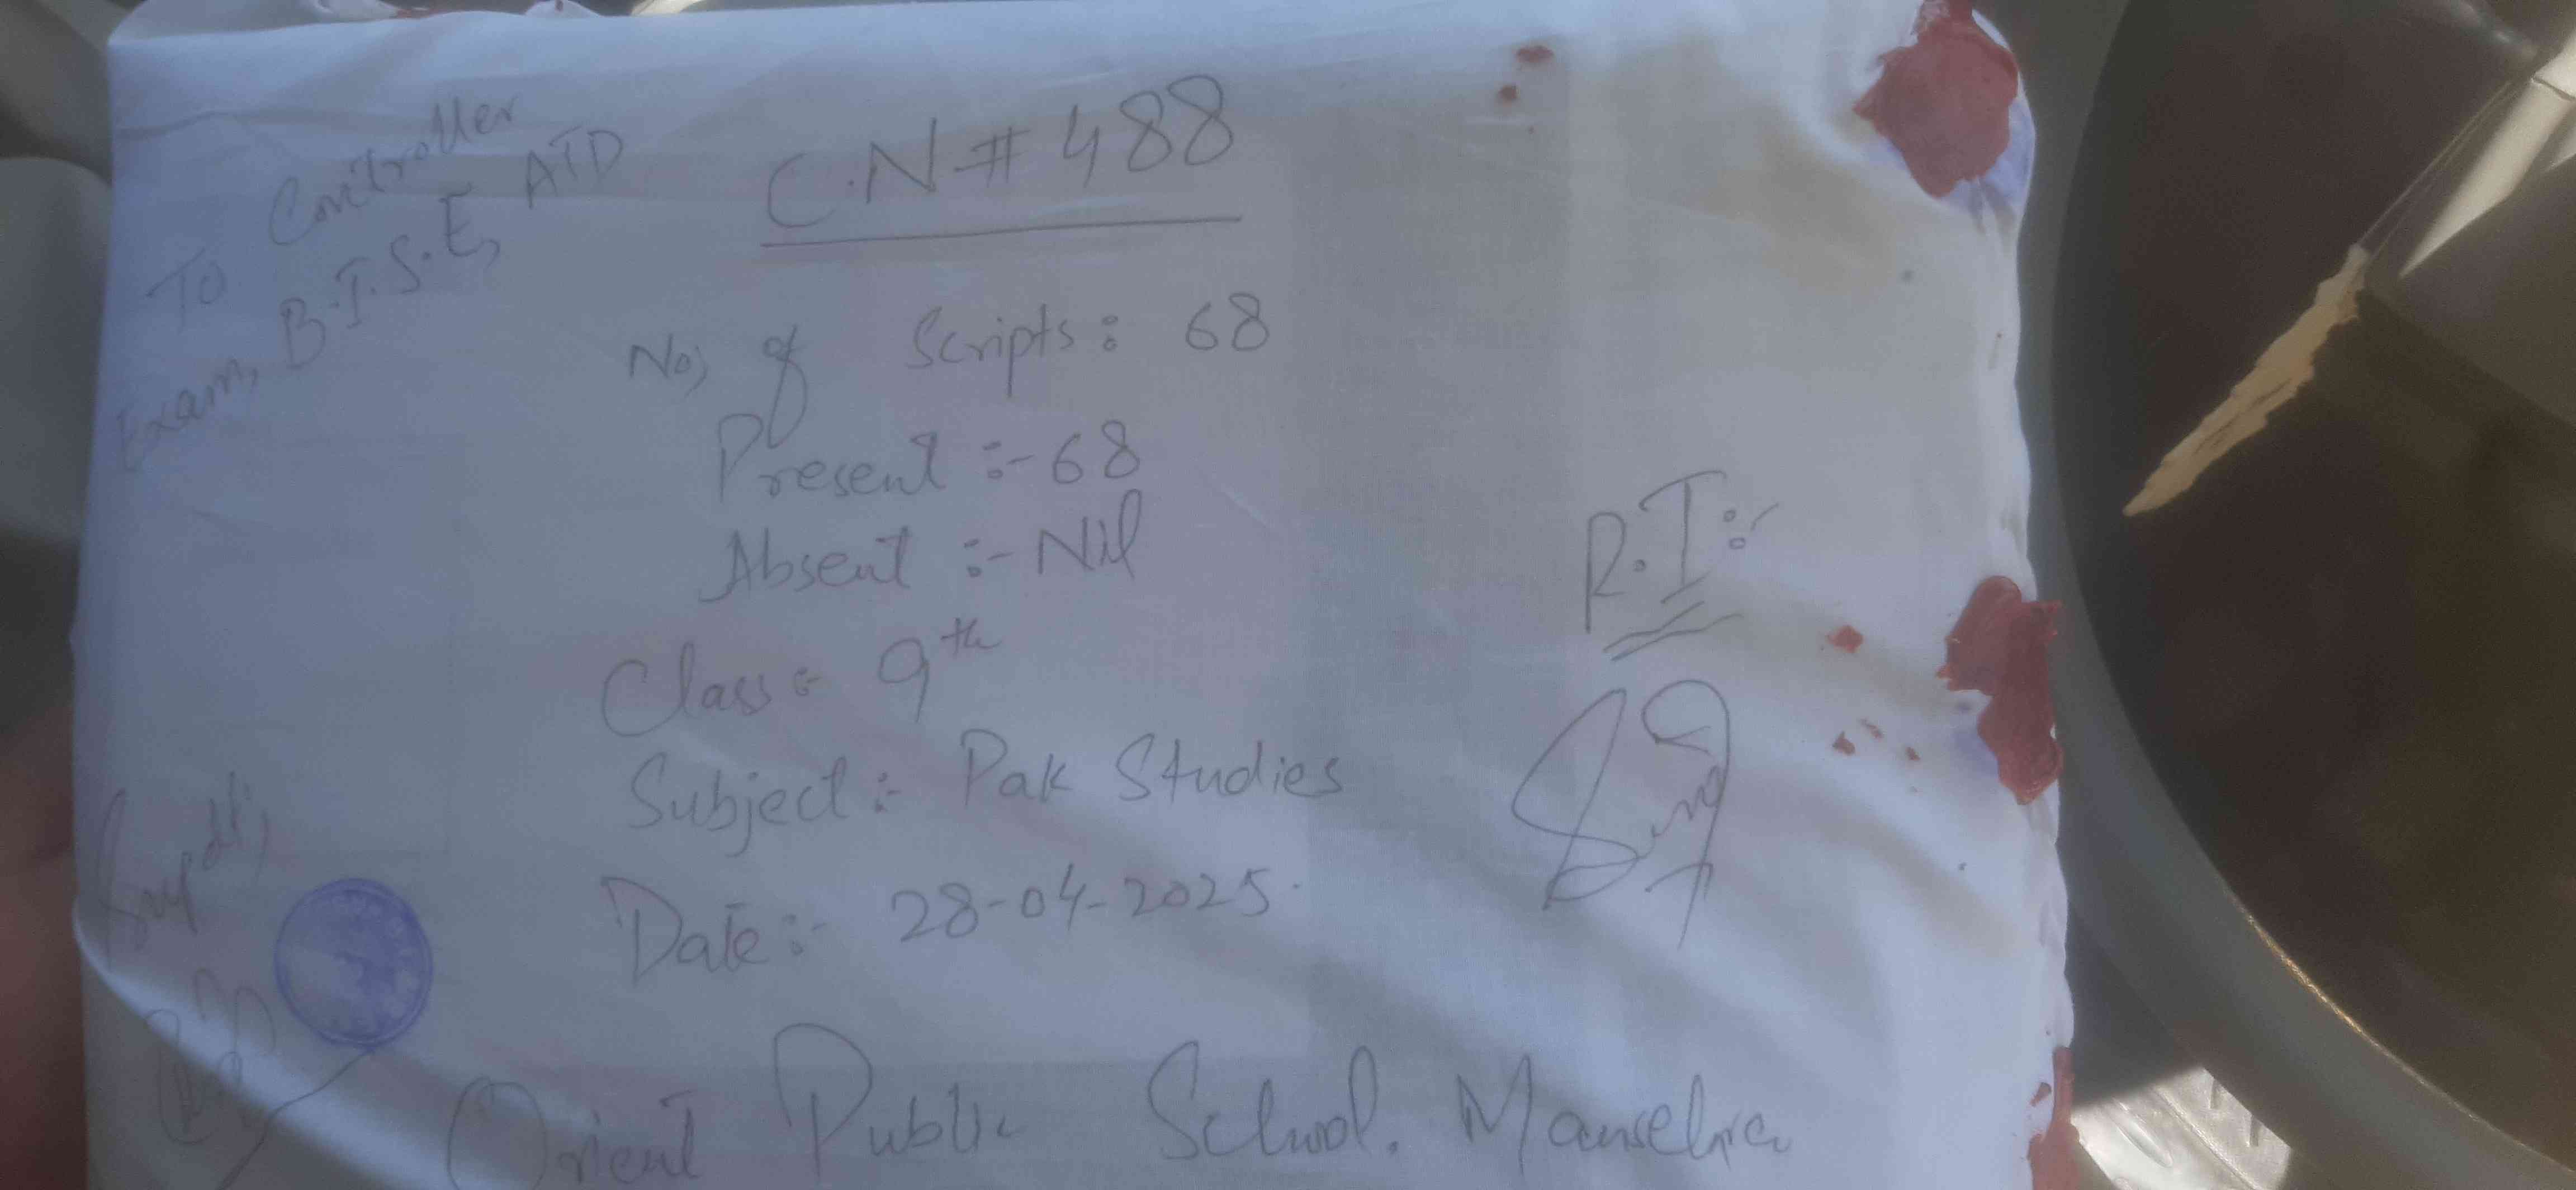 To Controller
Exam, B.I.S.E, ATD
C.N # 488
No, of Scripts: 68
Present :- 68
Absent :- Nil
Class :- 9th
Subject :- Pak Studies
Date :- 28-04-2025.
R.I :-
Supdt;
Orient Public School. Mansehra